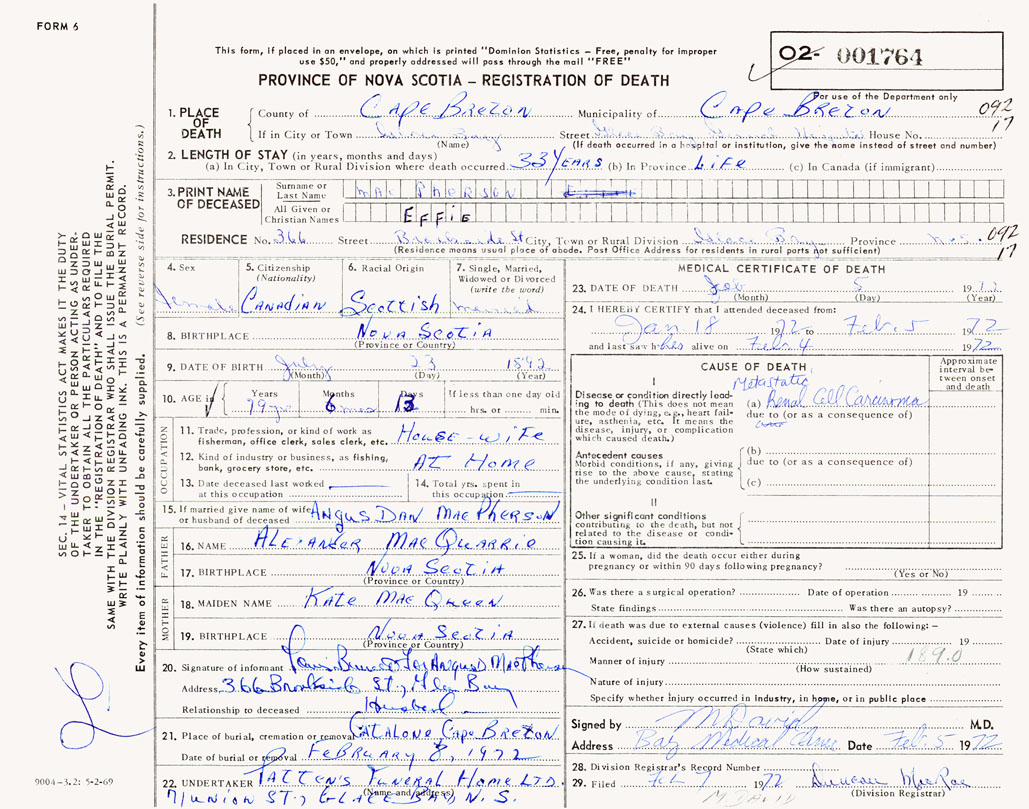 FORM 6
This form, if placed in an envelope, on which is printed "Dominion Statistics – Free, penalty for improper
use $50," and properly addressed will pass through the mail "FREE"
02- 001764
PROVINCE OF NOVA SCOTIA – REGISTRATION OF DEATH
For use of the Department only
092
17
1. PLACE OF DEATH
County of CAPE BRETON Municipality of CAPE BRETON
If in City or Town Glace Bay Street Glace Bay General Hospital House No.
(Name) (If death occurred in a hospital or institution, give the name instead of street and number)
2. LENGTH OF STAY (in years, months and days)
(a) In City, Town or Rural Division where death occurred 33 YEARS (b) In Province LIFE (c) In Canada (if immigrant)
3. PRINT NAME OF DECEASED
Surname or Last Name MAC PHERSON
All Given or Christian Names EFFIE
RESIDENCE No. 366 Street Brookside St City, Town or Rural Division Glace Bay Province N.S. 092
17
(Residence means usual place of abode. Post Office Address for residents in rural parts not sufficient)
4. Sex
female
5. Citizenship
(Nationality)
CANADIAN
6. Racial Origin
Scottish
7. Single, Married,
Widowed or Divorced
(write the word)
married
8. BIRTHPLACE NOVA SCOTIA
(Province or Country)
9. DATE OF BIRTH July 23 1892
(Month) (Day) (Year)
10. AGE in
Years Months Days If less than one day old
79 yrs 6 mos 13 hrs. or min.
OCCUPATION
11. Trade, profession, or kind of work as
fisherman, office clerk, sales clerk, etc. HOUSE-WIFE
12. Kind of industry or business, as fishing,
bank, grocery store, etc. AT HOME
13. Date deceased last worked
at this occupation
14. Total yrs. spent in
this occupation
15. If married give name of wife
or husband of deceased ANGUS DAN MACPHERSON
FATHER
16. NAME ALEXANDER MACQUARRIE
17. BIRTHPLACE NOVA SCOTIA
(Province or Country)
MOTHER
18. MAIDEN NAME KATE MACQUEEN
19. BIRTHPLACE NOVA SCOTIA
(Province or Country)
20. Signature of informant for Angus D MacPherson
Address 366 Brookside St., Glace Bay
Relationship to deceased Husband
21. Place of burial, cremation or removal CATALONE CAPE BRETON
Date of burial or removal FEBRUARY 8, 1972
22. UNDERTAKER PATTEN'S FUNERAL HOME LTD.
(Name and address)
71 UNION ST., GLACE BAY, N.S.
MEDICAL CERTIFICATE OF DEATH
23. DATE OF DEATH Feb 5 1972
(Month) (Day) (Year)
24. I HEREBY CERTIFY that I attended deceased from:
Jan 18 1972 to Feb. 5 1972
and last saw her alive on Feb. 4 1972
CAUSE OF DEATH
Approximate
interval be-
tween onset
and death
I
Metastatic
Disease or condition directly lead-
ing to death (This does not mean
the mode of dying, e.g., heart fail-
ure, asthenia, etc. It means the
disease, injury, or complication
which caused death.)
(a) Renal Cell Carcinoma
due to (or as a consequence of)
Antecedent causes
Morbid conditions, if any, giving
rise to the above cause, stating
the underlying condition last.
(b)
due to (or as a consequence of)
(c)
II
Other significant conditions
contributing to the death, but not
related to the disease or condi-
tion causing it.
25. If a woman, did the death occur either during
pregnancy or within 90 days following pregnancy?
(Yes or No)
26. Was there a surgical operation? Date of operation 19
State findings Was there an autopsy?
27. If death was due to external causes (violence) fill in also the following: –
Accident, suicide or homicide? Date of injury 19
(State which)
189.0
Manner of injury
(How sustained)
Nature of injury
Specify whether injury occurred in industry, in home, or in public place
Signed by M David M.D.
Address Bay Medical Clinic Date Feb. 5 1972
28. Division Registrar's Record Number
29. Filed Feb 7 1972 Duncan MacRae
(Division Registrar)
M. DAVID
SEC. 14 – VITAL STATISTICS ACT MAKES IT THE DUTY
OF THE UNDERTAKER OR PERSON ACTING AS UNDER-
TAKER TO OBTAIN ALL THE PARTICULARS REQUIRED
IN THE "REGISTRATION OF DEATH" AND TO FILE THE
SAME WITH THE DIVISION REGISTRAR WHO SHALL ISSUE THE BURIAL PERMIT.
WRITE PLAINLY WITH UNFADING INK. THIS IS A PERMANENT RECORD.
Every item of information should be carefully supplied. (See reverse side for instructions.)
9004-3.2: 5-2-69